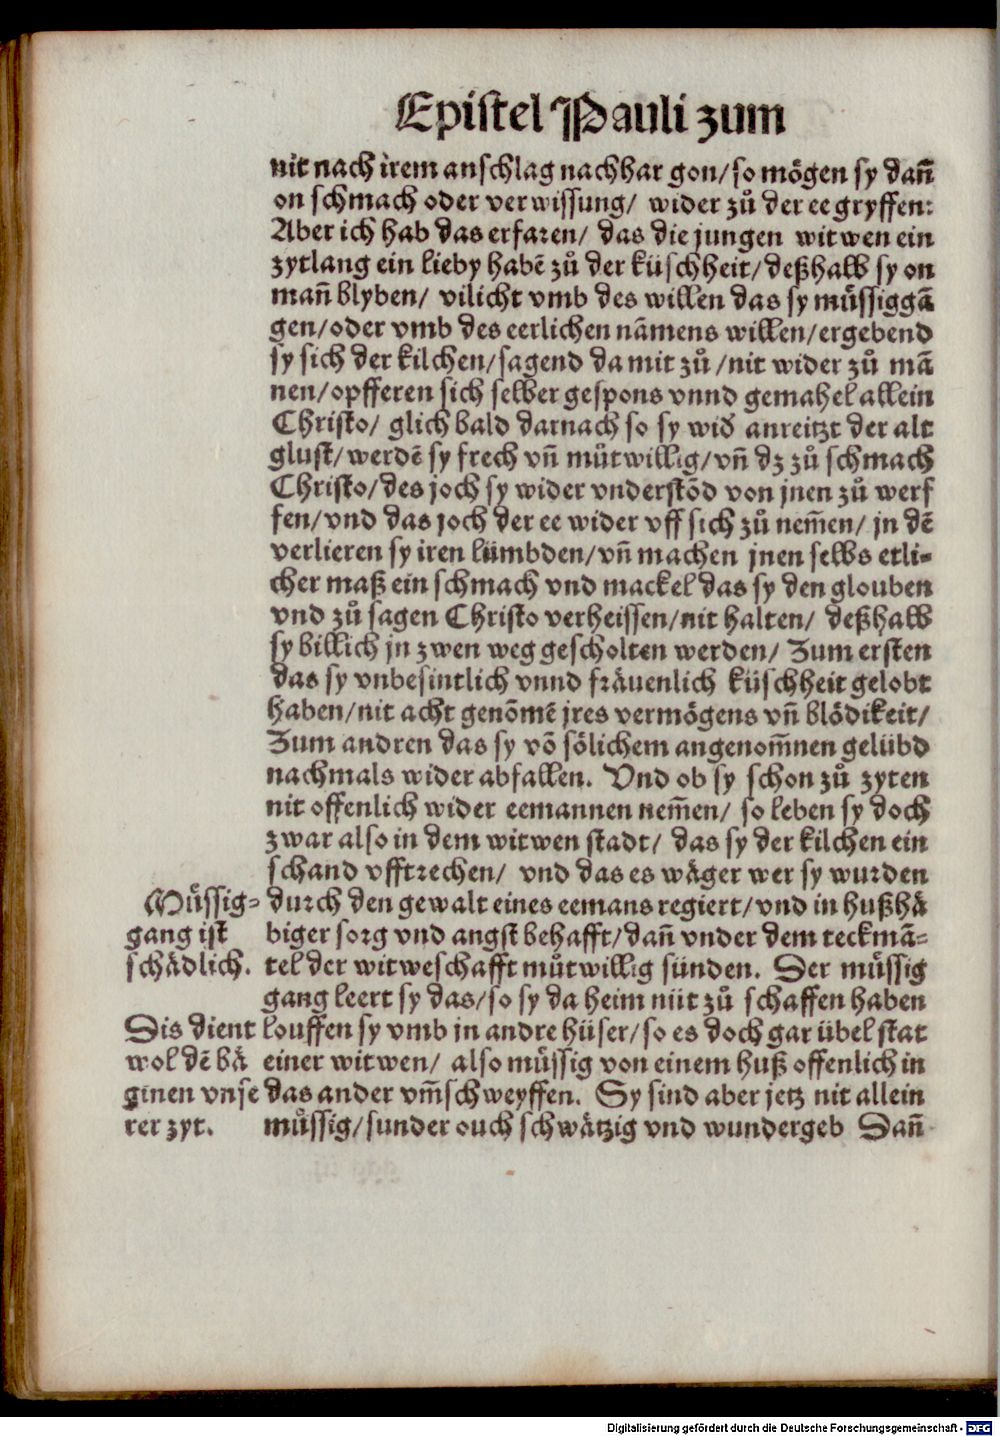 Epistel Pauli zum
nit nach irem anschlag nachhar gon/ so mögen sy dañ
on schmach oder verwissung/ wider zů der ee gryffen:
Aber ich hab das erfaren/ das die jungen witwen ein
zytlang ein lieby habē zů der küschheit/ deßhalb sy on
mañ blyben/ vilicht vmb des willen das sy müssiggā
gen/ oder vmb des eerlichen nāmens willen/ ergebend
sy sich der kilchen/ sagend da mit zů/ nit wider zů mā
nen/ opfferen sich selber gespons vnnd gemahel allein
Christo/ glich bald darnach so sy wiđ anreitzt der alt
glust/ werdē sy frech vñ můtwillig/ vñ dz zů schmach
Christo/ des joch sy wider vnderstōd von jnen zů werf
fen/ vnd das joch der ee wider vff sich zů nem̃en/ jn dē
verlieren sy iren lümbden/ vñ machen jnen selbs etli-
cher maß ein schmach vnd mackel das sy den glouben
vnd zů sagen Christo verheissen/ nit halten/ deßhalb
sy billich jn zwen weg gescholten werden/ Zum ersten
das sy vnbesintlich vnnd fräuenlich küschheit gelobt
haben/ nit acht genōmē jres vermögens vñ blödikeit/
Zum andren das sy vō sölichem angenom̃nen gelübd
nachmals wider abfallen. Vnd ob sy schon zů zyten
nit offenlich wider eemannen nem̃en/ so leben sy doch
zwar also in dem witwen stadt/ das sy der kilchen ein
schand vfftrechen/ vnd das es wäger wer sy wurden
durch den gewalt eines eemans regiert/ vnd in hußhä
biger sorg vnd angst behafft/ dañ vnder dem teckmā-
tel der witweschafft můtwillig sünden. Der müssig
gang leert sy das/ so sy da heim nüt zů schaffen haben
louffen sy vmb in andre hüser/ so es doch gar übel stat
einer witwen/ also müssig von einem huß offenlich in
das ander vm̃schweyffen. Sy sind aber jetz nit allein
müssig/ sunder ouch schwätzig vnd wundergeb Dañ
Müssig-
gang ist
schädlich.
Dis dient
wol dē bä
ginen vnse
rer zyt.
Digitalisierung gefördert durch die Deutsche Forschungsgemeinschaft - DFG